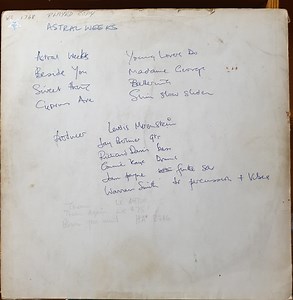 WS 1768 PLAYED CITY
ASTRAL WEEKS
Astral Weeks
Beside You
Sweet Thing
Cyprus Ave
Young Lovers Do
Madame George
Ballerina
Slim slow slider
Producer Lewis Merenstein
Jay Berliner gtr
Richard Davis bass
Connie Kay Drums
John Payne flute sax
Warren Smith Jr percussion + Vibes